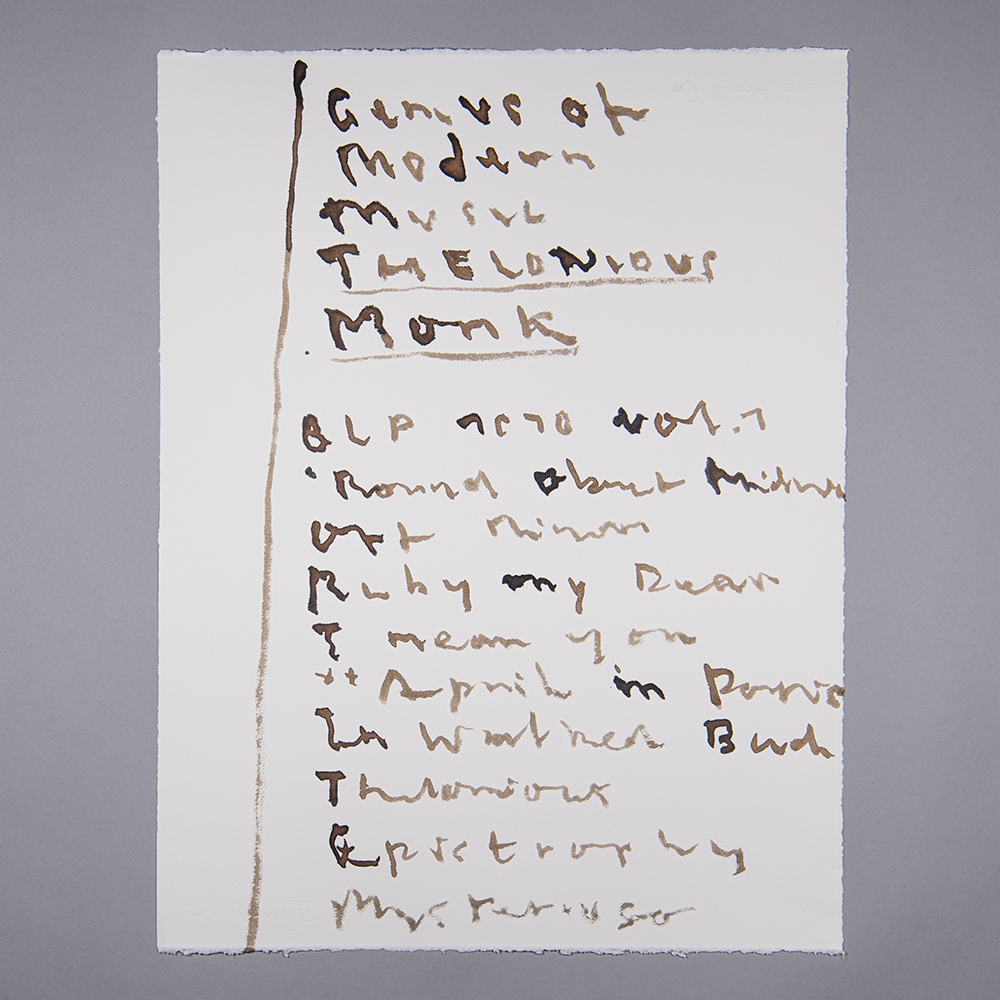 Genius of
Modern
Music
THELONIOUS
Monk
BLP 1510 Vol.1
'Round about Midni
Off Minor
Ruby my Dear
I mean you
++ April in Paris
In Walked Bud
Thelonious
Epistrophy
Mysterioso